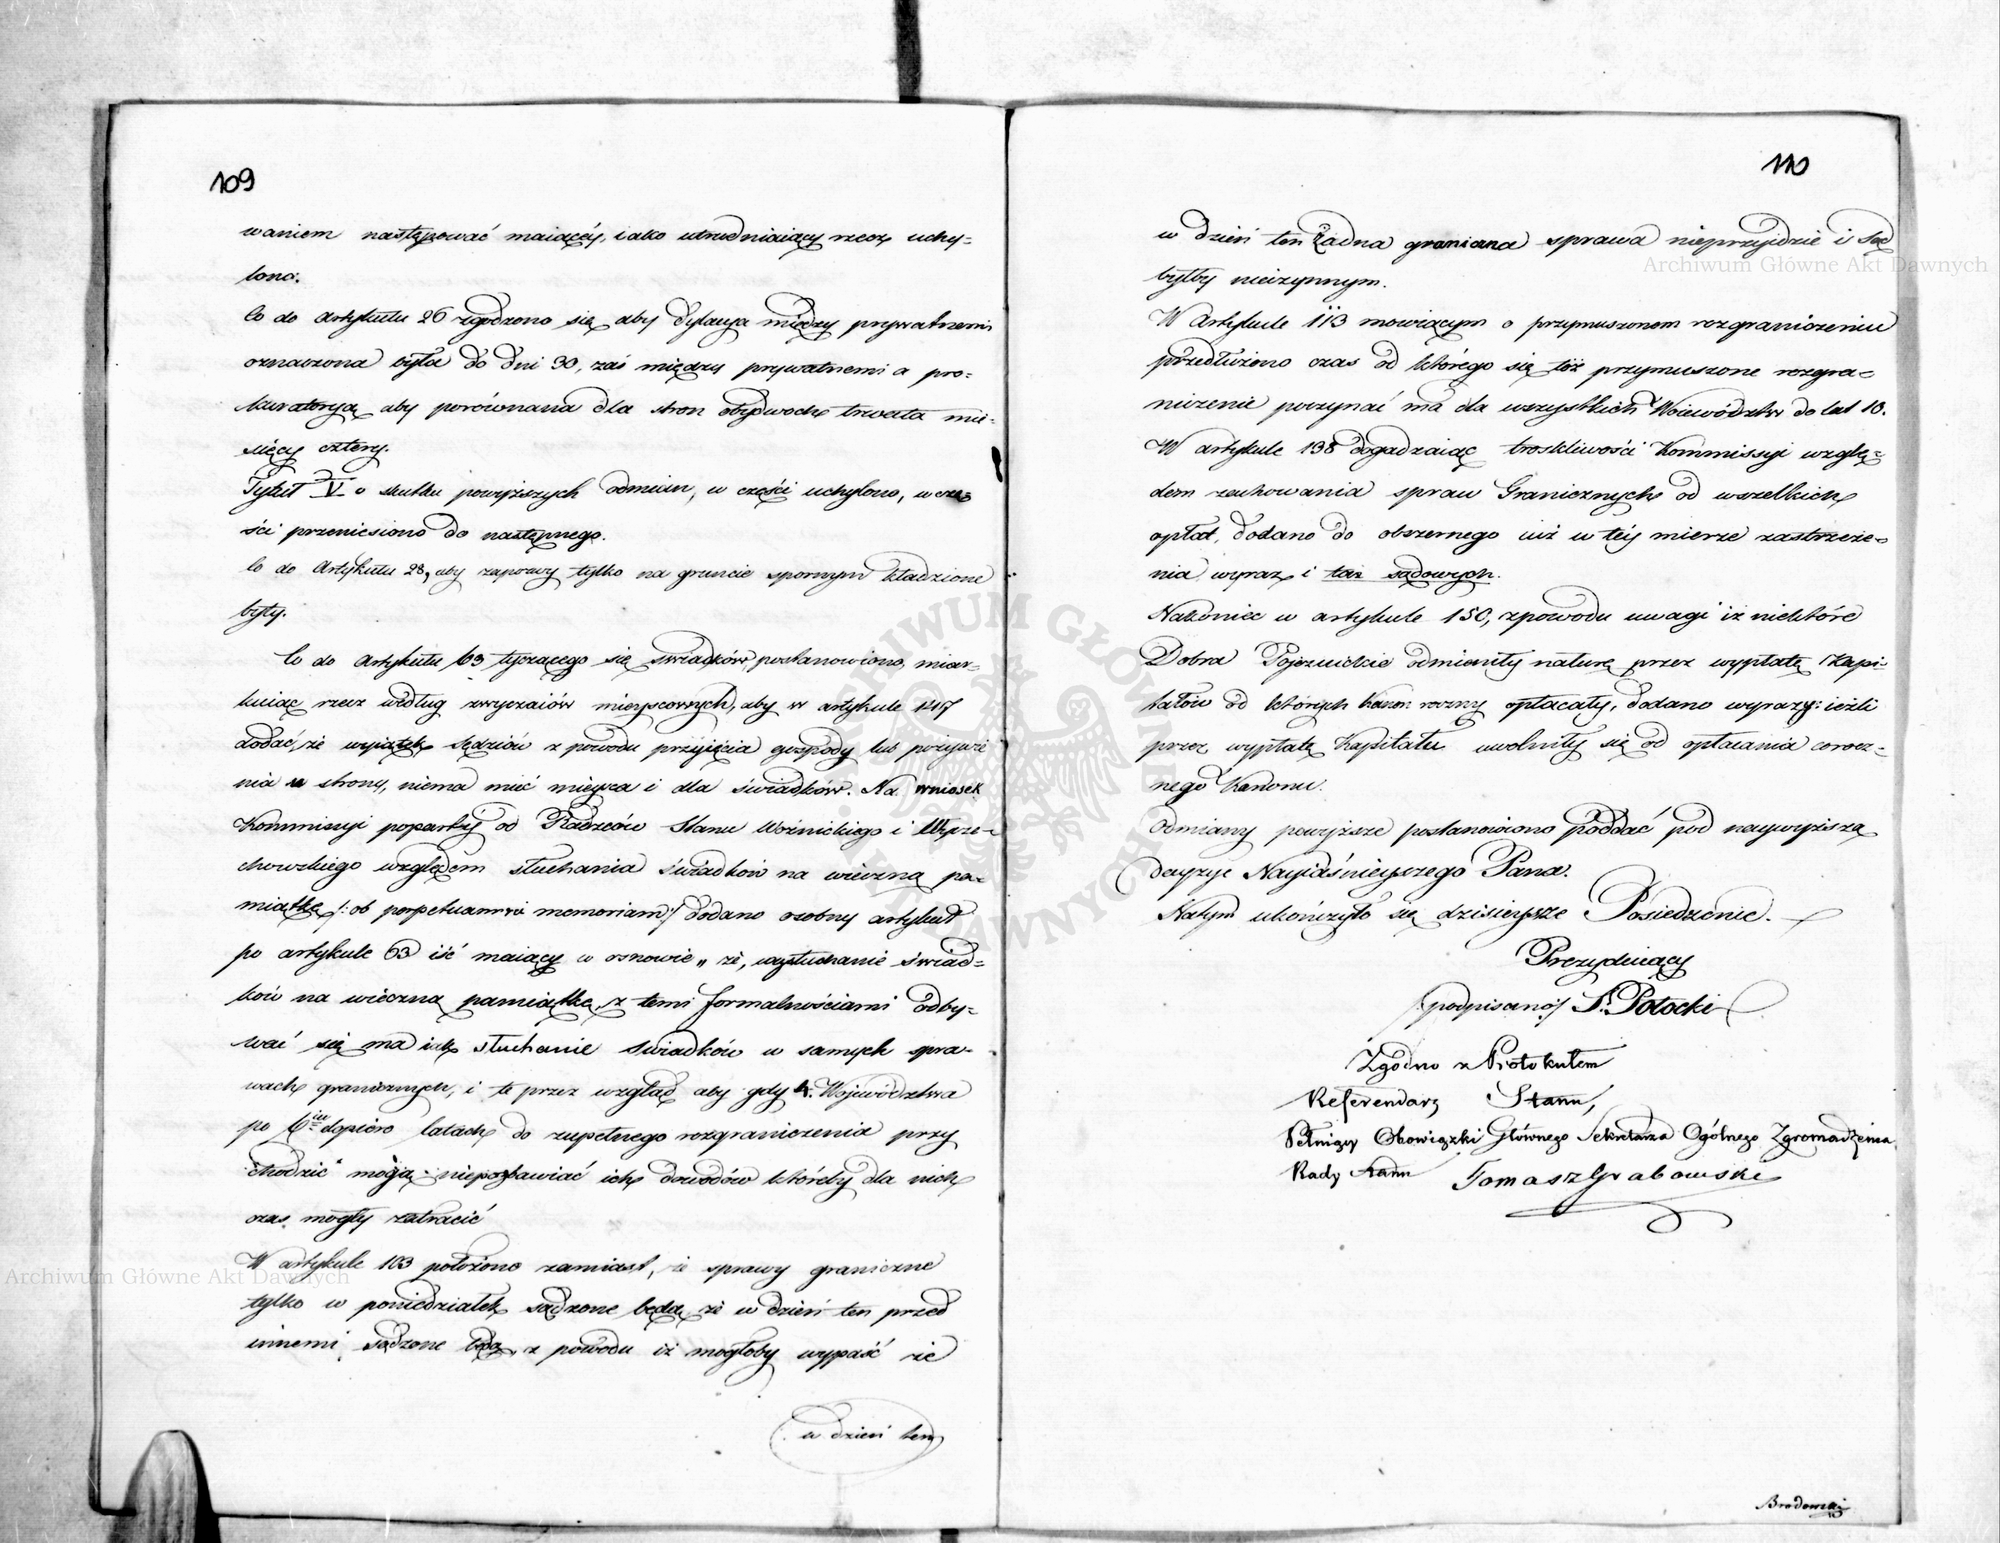 109
waniem następować maiącéy, iako utrudniaiący rzecz uchy-
lono.
Co do Artykułu 26 zgodzono się, aby dylacya między prywatnemi
oznaczona była do dni 30, zaś między prywatnemi a pro-
kuratoryą aby porównana dla stron obydwoch trwała mie-
sięcy cztery.
Tytuł V o skutku powyższych odmian, w części uchylono, w czę-
ści przeniesiono do następnego.
Co do Artykułu 28, aby zaprawy tylko na gruncie spornym kładzione
były.
Co do Artykułu 63 tyczącego się świadków, postanowiono, miar-
kuiąc rzecz według zwyczaiów mieyscowych, aby w artykule 147
dodać, że wyiątek sędziów z powodu przyięcia gospody lub pożywie
nia u strony, niema mieć mieysca i dla świadków. Na wniosek
Kommissyi poparty od Radzców Stanu Woźnickiego i Wycze-
chowskiego względem słuchania świadków na wieczną pa-
miątkę /: ob perpetuam rei memoriam :/ dodano osobny artykuł
po artykule 63 iść maiący w osnowie „ że, wysłuchanie świad-
ków na wieczną pamiątkę z temi formalnościami odby-
wać się ma iak słuchanie świadków w samych spra-
wach granicznych, i to przez wzgląd aby gdy 4. Województwa
po 6ciu dopiero latach do zupełnego rozgraniczenia przy
chodzić mogą niepozbawiać ich dowodów któreby dla nich
czas mogły zatracić
W artykule 103 położono zamiast, że sprawy graniczne
tylko w poniedziałek sądzone będą, że w dzień ten przed
innemi sądzone będą, z powodu iż mogłoby wypaść że
w dzień ten
110
w dzień ten żadna graniczna sprawa nieprzyjdzie i Sąd
byłby nieczynnym.
W Artykule 113 mówiącym o przymuszonem rozgraniczeniu
przedłużono czas od którego się toż przymuszone rozgra-
niczenie poczynać ma dla wszystkich Województw do lat 10.
W artykule 138 dogadzaiąc troskliwości Kommissyi wzglę-
dem zachowania spraw Granicznych od wszelkich
opłat, dodano do obszernego iuż w téy mierze zastrzeże-
nia wyraz i tax sądowych.
Nakoniec w artykule 150, z powodu uwagi iż niektóre
Dobra Pojezuickie odmieniły naturę przez wypłatę Kapi-
tałów od których kanon roczny opłacały, dodano wyrazy: ieżli
przez wypłatę Kapitału uwolniły się od opłacania corocz-
nego Kanonu.
Odmiany powyższe postanowiono poddać pod naywyższą
decyzyę Nayiaśnieyszego Pana.
Natym ukończyło się dzisieysze Posiedzenie.
Prezyduiący
/podpisano/ S. Potocki
Zgodno z Protokułem
Referendarz Stanu,
Pełniący Obowiązki Głównego Sekretarza Ogólnego Zgromadzenia
Rady Stanu Tomasz Grabowski
Brodowski
Archiwum Główne Akt Dawnych
Archiwum Główne Akt Dawnych
ARCHIWUM GŁÓWNE AKT DAWNYCH